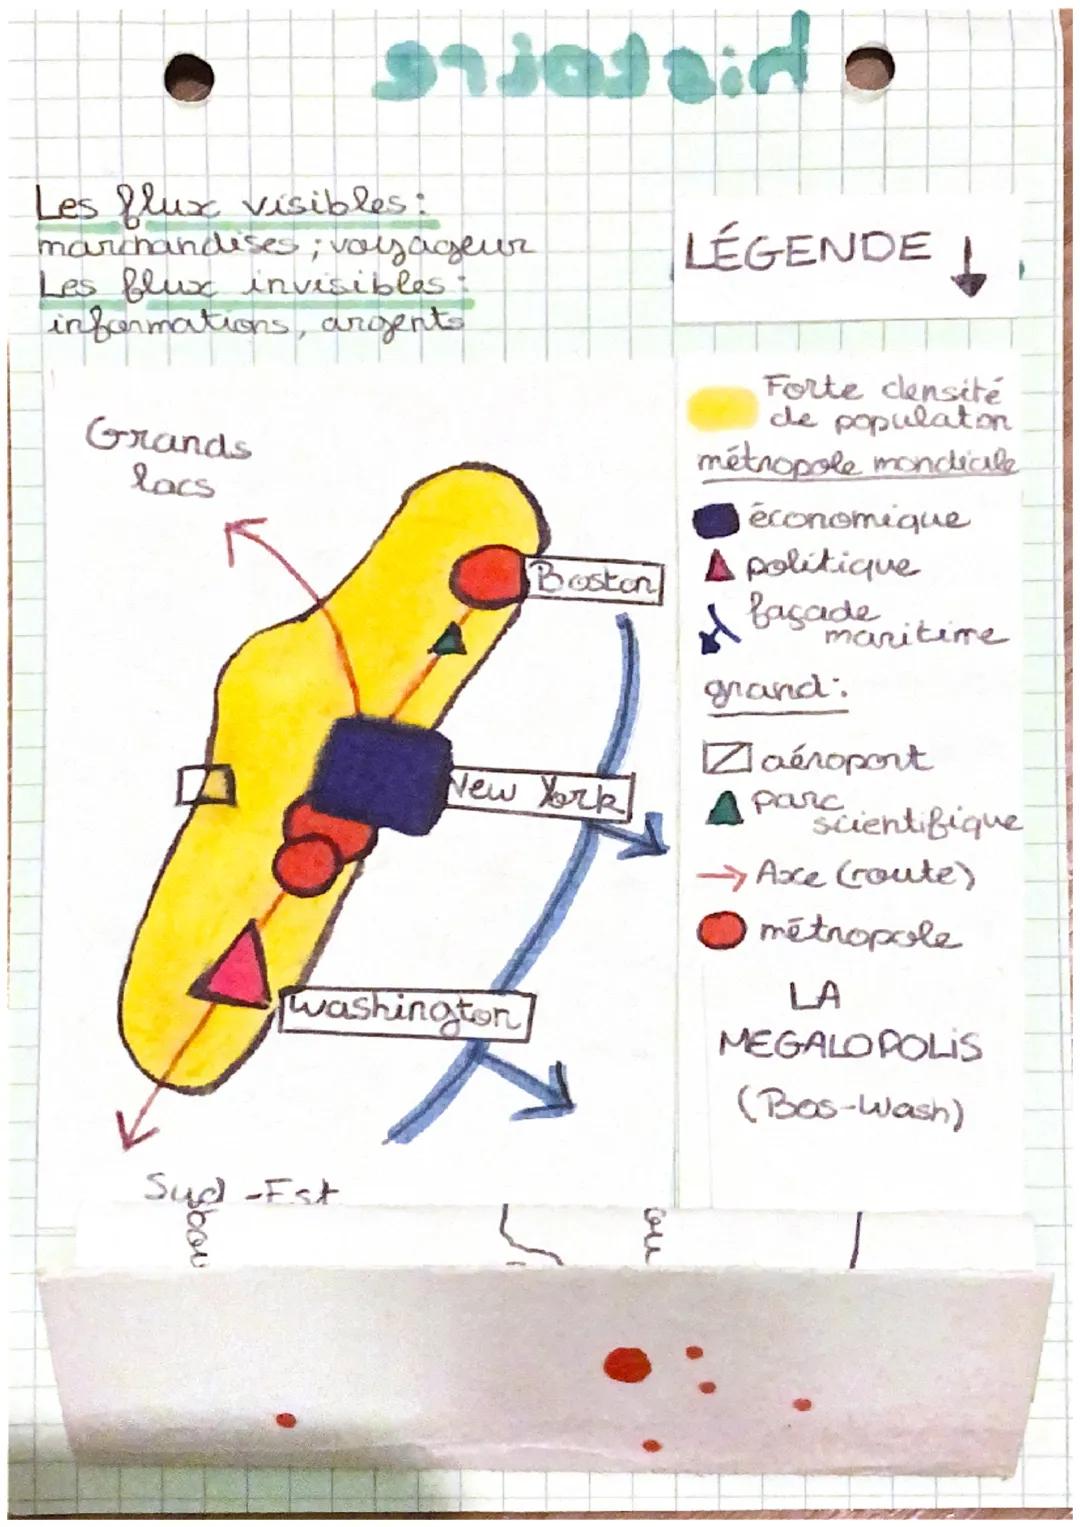 histoire
Les flux visibles:
marchandises ; voyageur
Les flux invisibles:
informations, argents
LÉGENDE
Grands
lacs
Boston
New York
Washington
Sud-Est
Forte densité
de populaton
métropole mondiale
économique
politique
façade
maritime
grand:
aéroport
parc
scientifique
Axe (route)
métropole
LA
MEGALOPOLIS
(Bos-Wash)